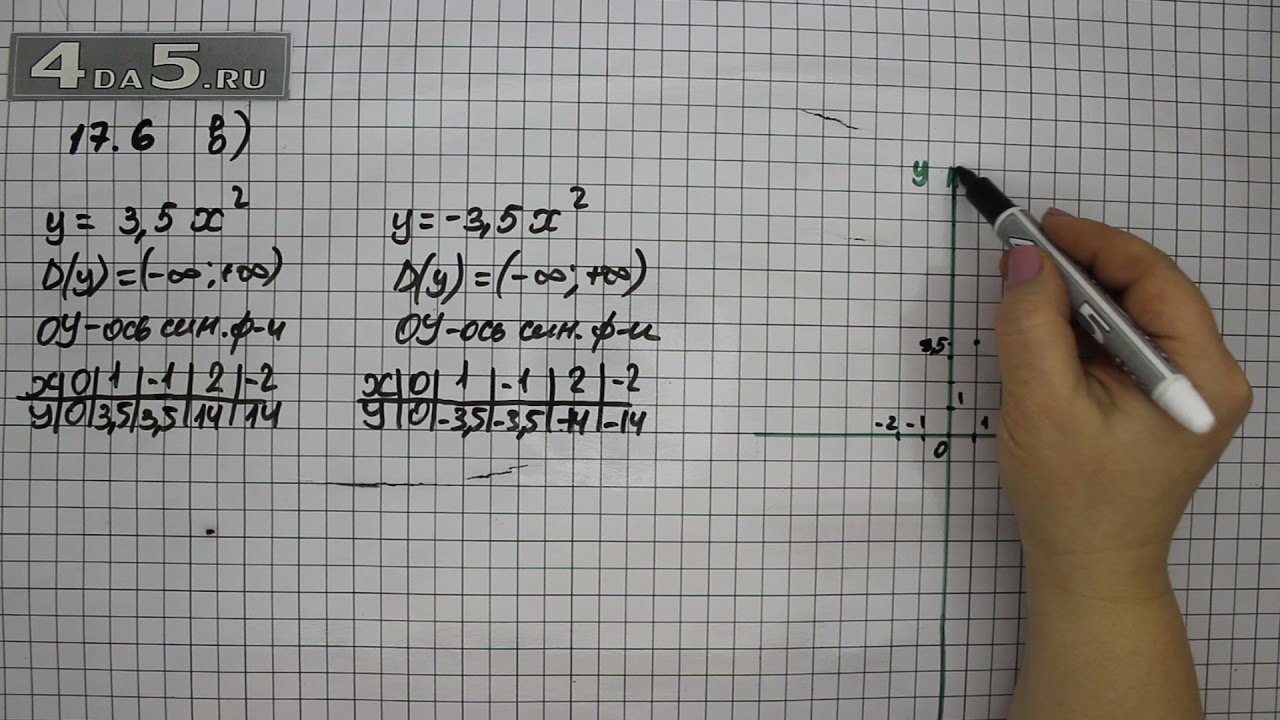 4DA5.RU
17.6 в)
y = 3,5 x²
D(y) = (-∞; +∞)
ОУ-ось сим. ф-и
x | 0 | 1 | -1 | 2 | -2
y | 0 | 3,5 | 3,5 | 14 | 14
y = -3,5 x²
D(y) = (-∞; +∞)
ОУ-ось сим. ф-и
x | 0 | 1 | -1 | 2 | -2
y | 0 | -3,5 | -3,5 | -14 | -14
y
3,5
1
-2 -1 1
0